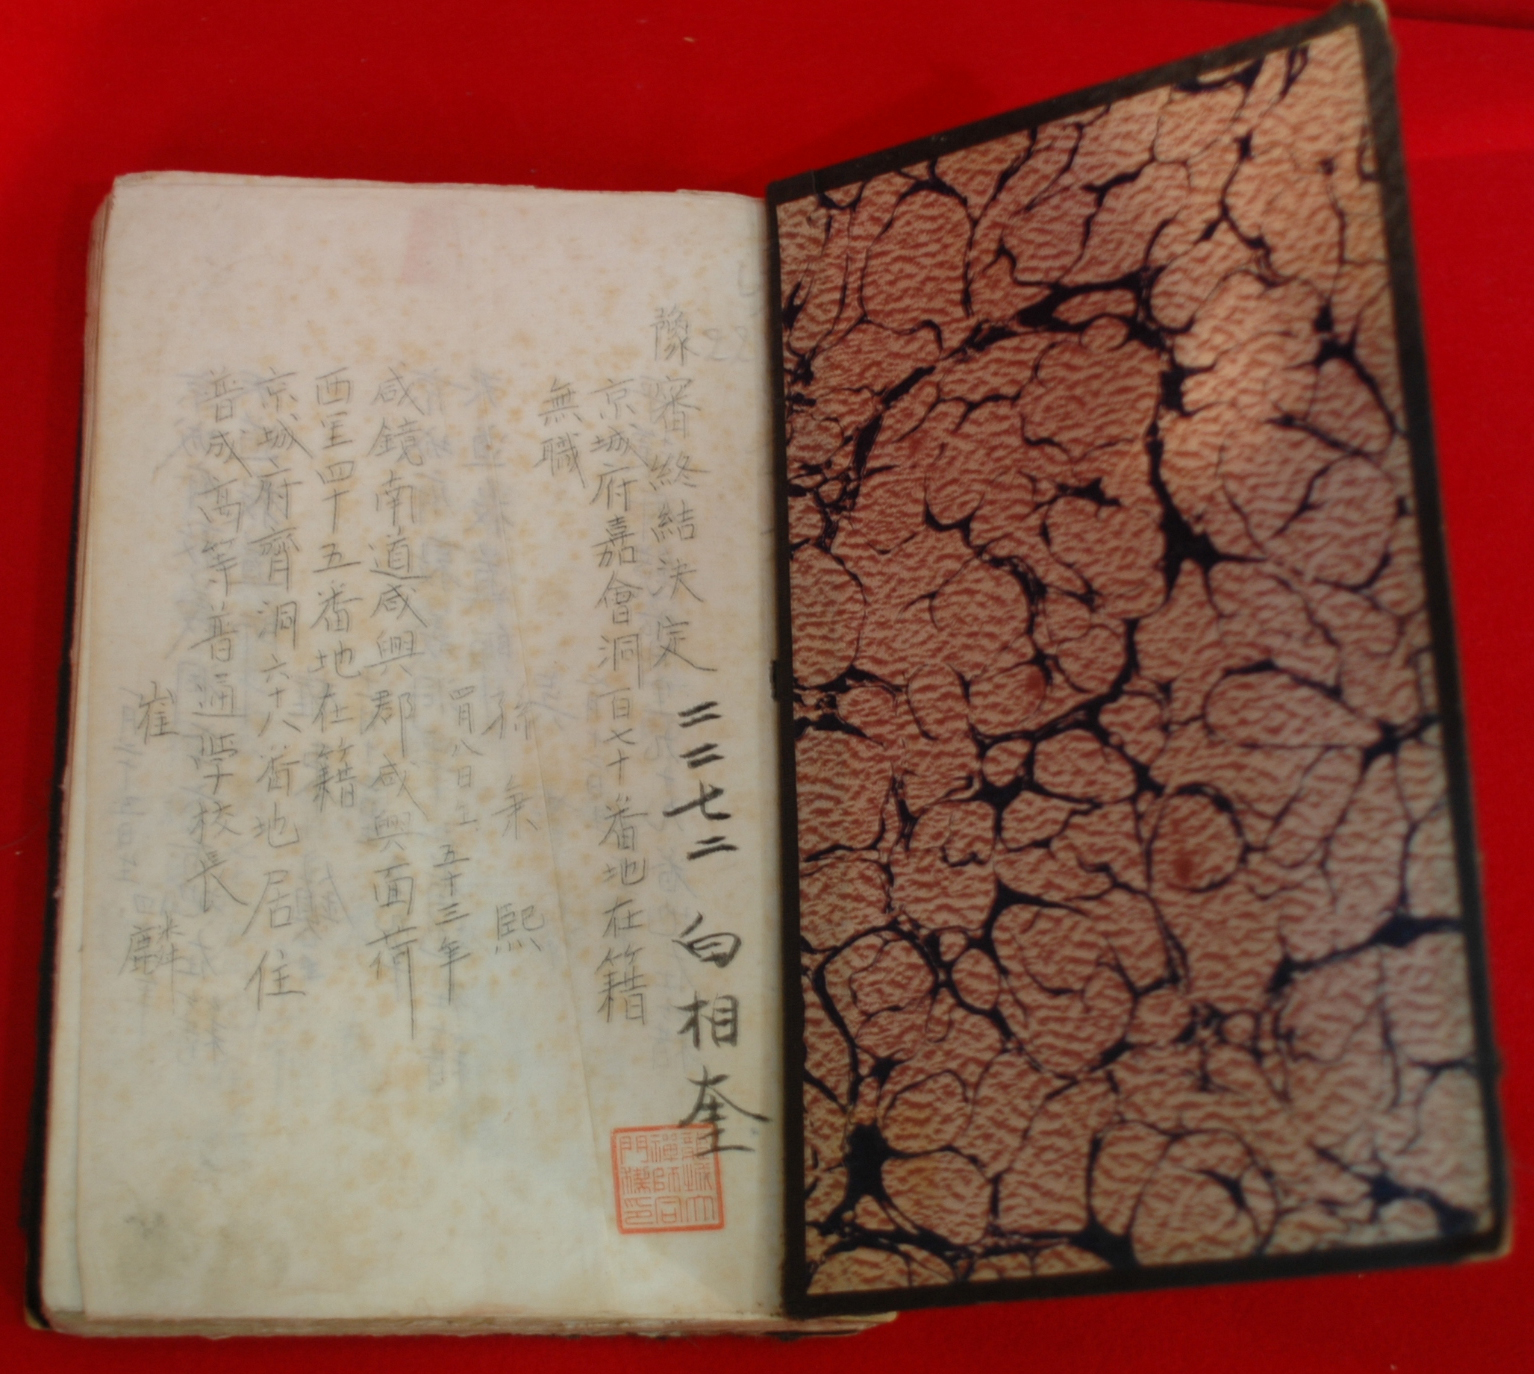 豫審終結決定 二二七二 白相奎
京城府嘉會洞百七十番地在籍
無職
孫秉熙
四月八日生 五十三年
咸鏡南道咸興郡咸興面荷
西里四十五番地在籍
京城府齊洞六十八番地居住
普成高等普通学校長
崔麟